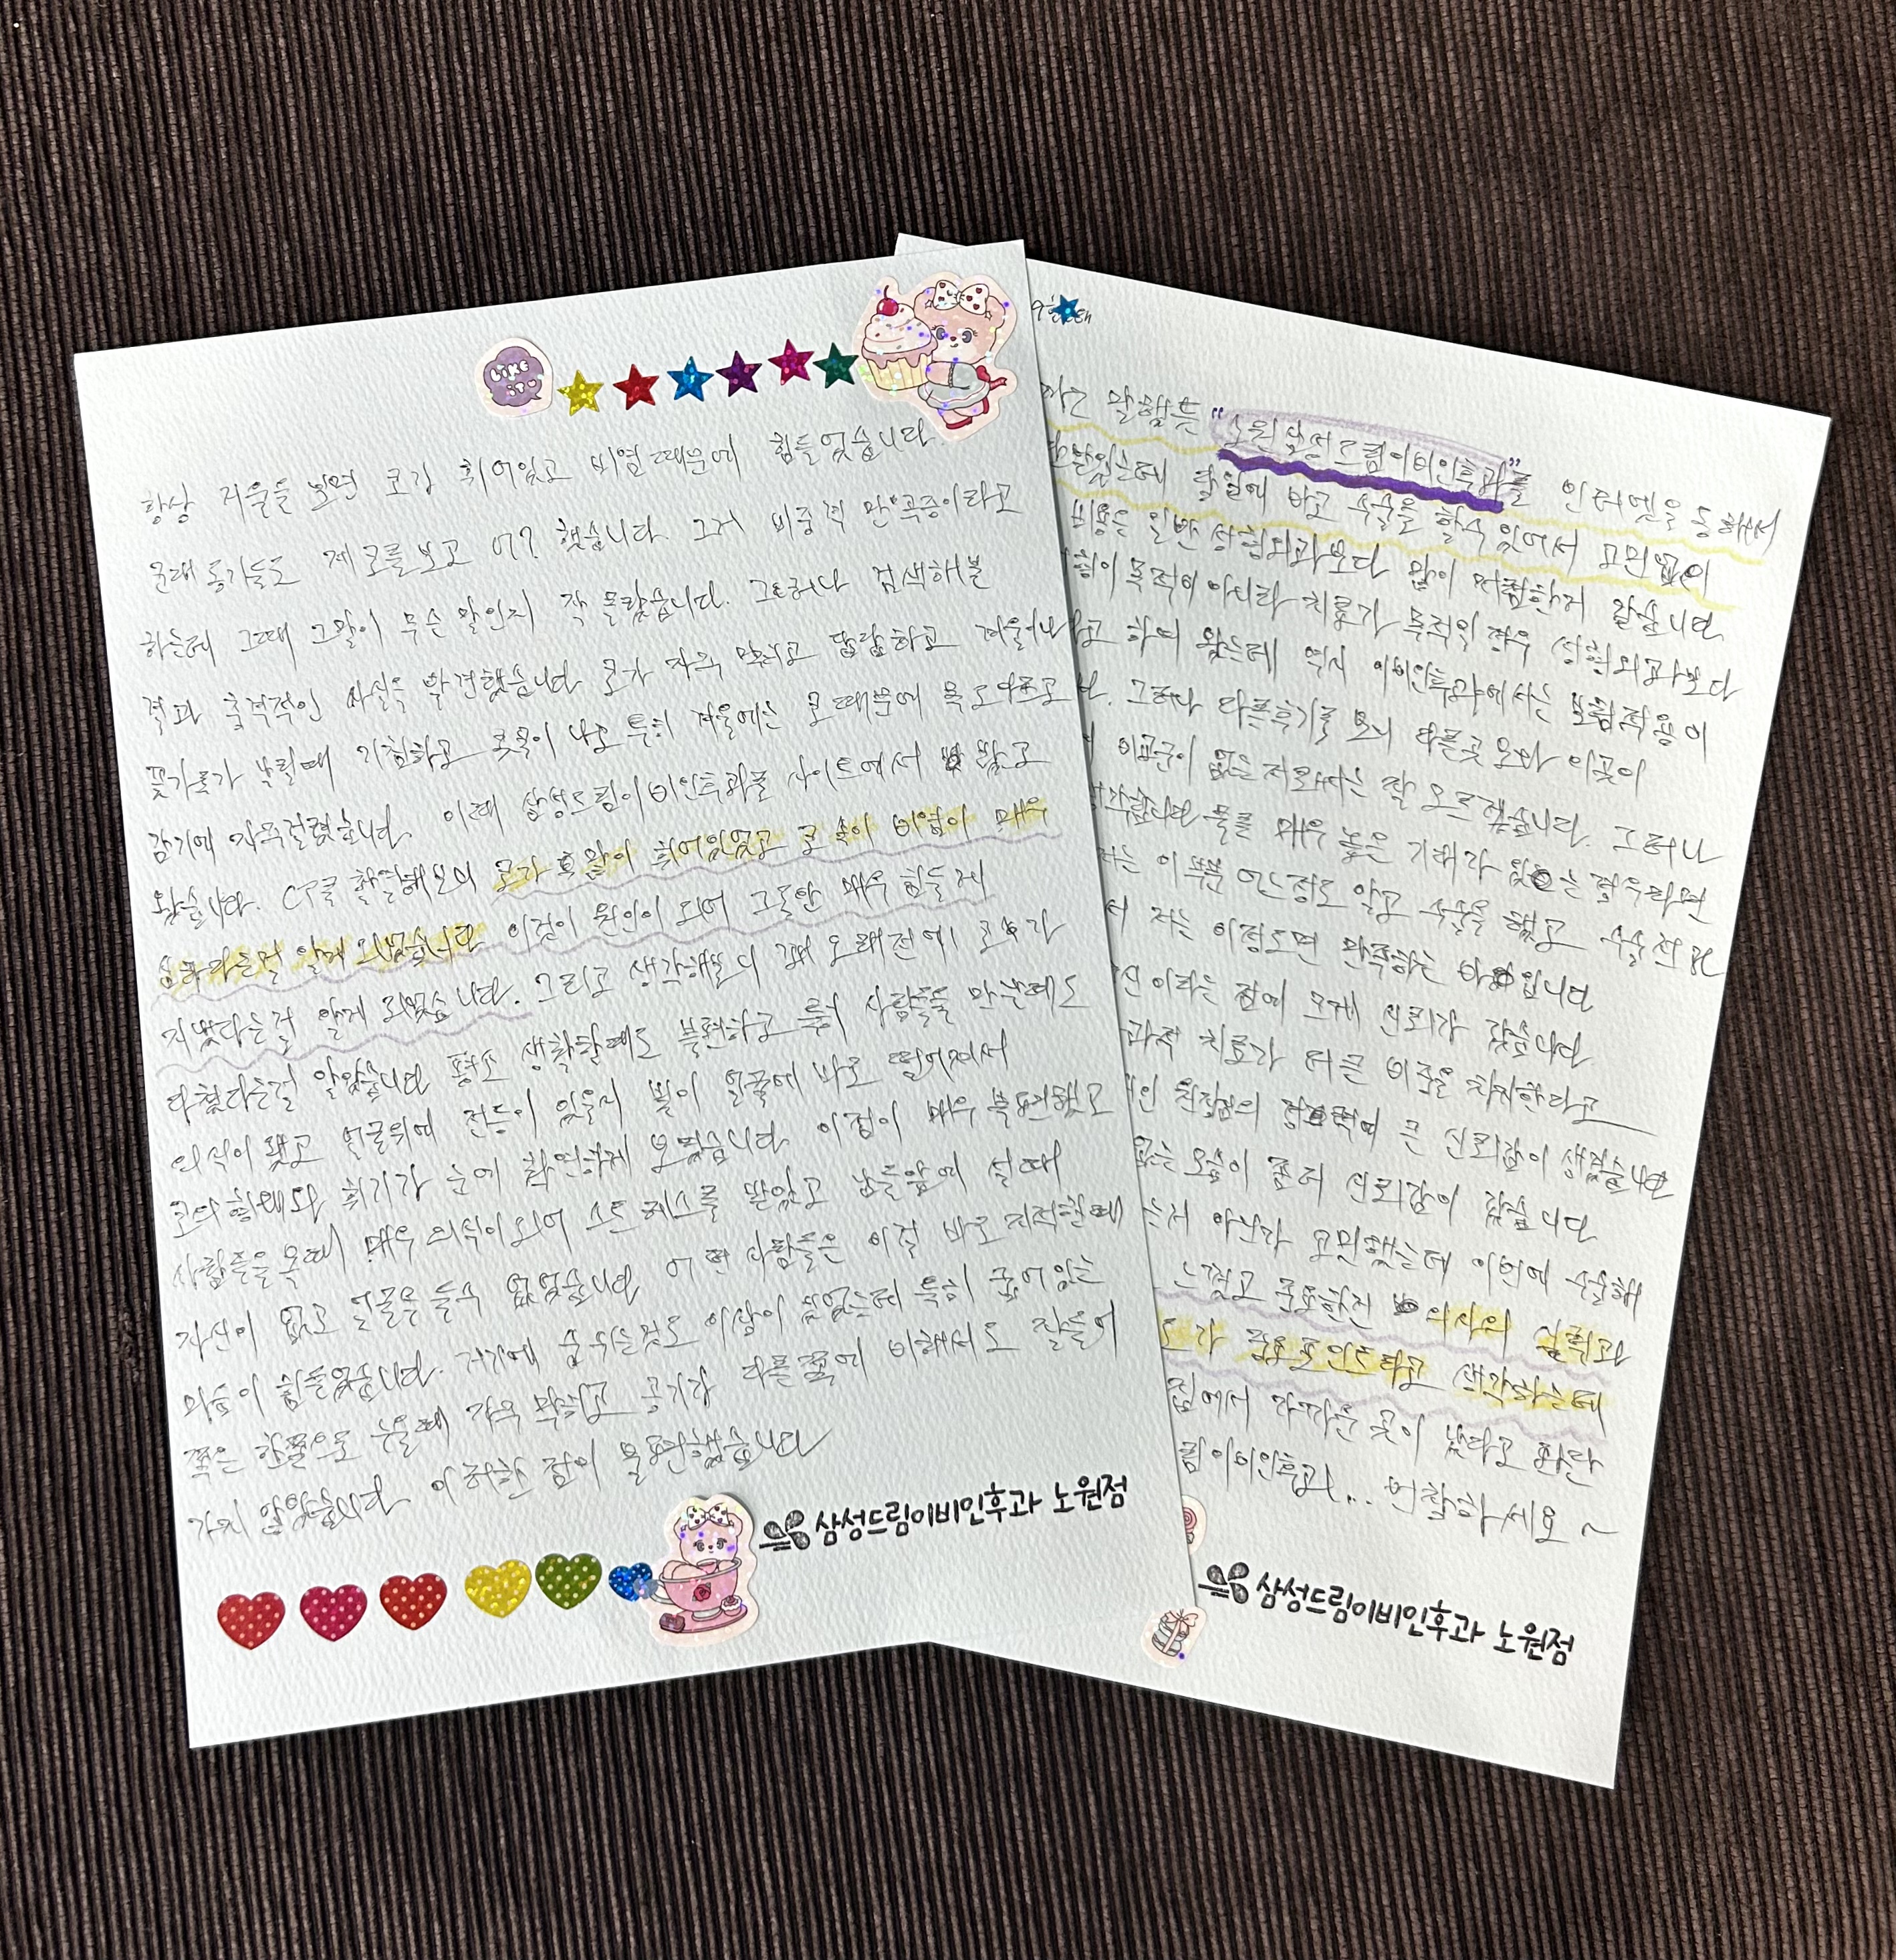 LIKE it~
항상 거울을 보면 코가 휘어있고 비염때문에 힘들었습니다
군대 동기들도 제 코를 보고 어? 했습니다 그게 비중격 만곡증이라고
하는데 그때 그말이 무슨 말인지 잘 몰랐습니다. 그러나 검색해본
결과 충격적인 사실을 발견했습니다 코가 자주 막히고 답답하고 겨울이나
꽃가루가 날릴때 기침하고 콧물이 나오 특히 겨울에는 코 때문에 목도 아프고
감기에 자주걸렸습니다 이때 삼성드림이비인후과를 사이트에서 찾고
왔습니다. CT를 촬영해보니 코가 많이 휘어있었고 코 속이 비염이 매우
심하다는걸 알게 되었습니다 이점이 원인이 되어 그동안 매우 힘들게
지냈다는걸 알게 되었습니다. 그리고 생각해보니 꽤 오래전에 코가
다쳤다는걸 알았습니다 평소 생활할때도 불편하고 특히 사람들을 만날때도
의식이 됐고 얼굴위에 전등이 있을시 빛이 얼굴에 바로 떨어져서
코의 형태와 휘기가 눈에 확연하게 보였습니다 이점이 매우 불편했고
사람들을 볼때 매우 의식이되어 스트레스를 받았고 남들앞에 설때
자신이 없고 얼굴을 들수 없었습니다 어떤 사람들은 이걸 바로 지적할때
마음이 힘들었습니다. 거기에 숨쉬는것도 이상이 있었는데 특히 휘어있는
쪽은 한쪽으로 누울때 자주 막히고 공기가 다른쪽에 비해서도 잘들어
가지 않았습니다 이러한 점이 불편했습니다
삼성드림이비인후과 노원점
말했듯 "노원삼성드림이비인후과"를 인터넷을 통해서
당일에 바로 수술을 할수 있어서 고민없이
비용은 일반 성형외과보다 많이 저렴한거 같습니다
목적이 아니라 치료가 목적인 경우 성형외과보다
하여 왔는데 역시 이비인후과에서는 보험적용이
그러나 다른후기를 보니 다른곳 보다 이곳이
비교군이 없는 저로써는 잘 모르겠습니다. 그러나
물론 매우 높은 기대가 있는 경우라면
이 부분 어느정도 알고 수술을 했고 수술전
저는 이정도면 만족하는 바입니다
이라는 점에 크게 신뢰가 갔습니다
치료가 더 큰 비중을 차지한다고
원장님의 큰 신뢰감이 생겼습니다
모습이 좀더 신뢰감이 갔습니다
아닌가 고민했는데 이번에 수술해
느꼈고 중요한건 의사의 실력과
가 중요 포인트라고 생각하는데
집에서 가까운 곳이 낫다고 판단
이비인후과... 번창하세요~
삼성드림이비인후과 노원점